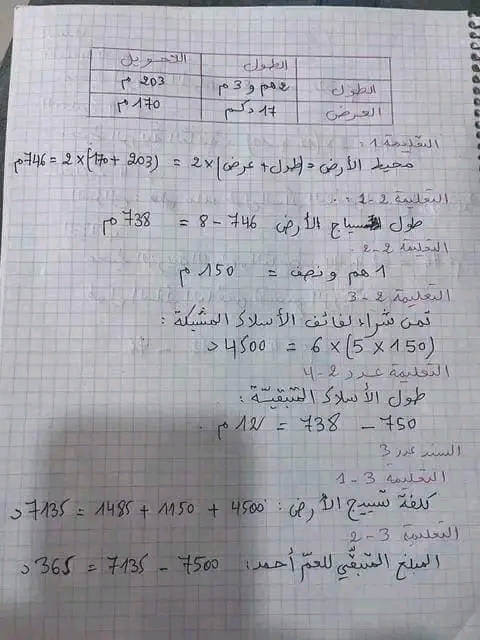 الطول التحويل
الطول 2هم و 3 م 203 م
العرض 17 دكم 170 م
التعليمة 1:
محيط الأرض = (طول + عرض) × 2 = (203 + 170) × 2 = 746 م
التعليمة 2-1:
طول سياج الأرض 746 - 8 = 738 م
التعليمة 2-2
1 هم و نصف = 150 م
التعليمة 2-3
ثمن شراء لفائف الأسلاك المشبكة:
(150 × 5) × 6 = 4500 د
التعليمة عدد 2-4
طول الأسلاك المتبقية:
750 - 738 = 12 م.
السند عدد 3
التعليمة 3-1
كلفة تسييج الأرض: 4500 + 1150 + 1485 = 7135 د
التعليمة 3-2
المبلغ المتبقي للعم أحمد: 7500 - 7135 = 365 د